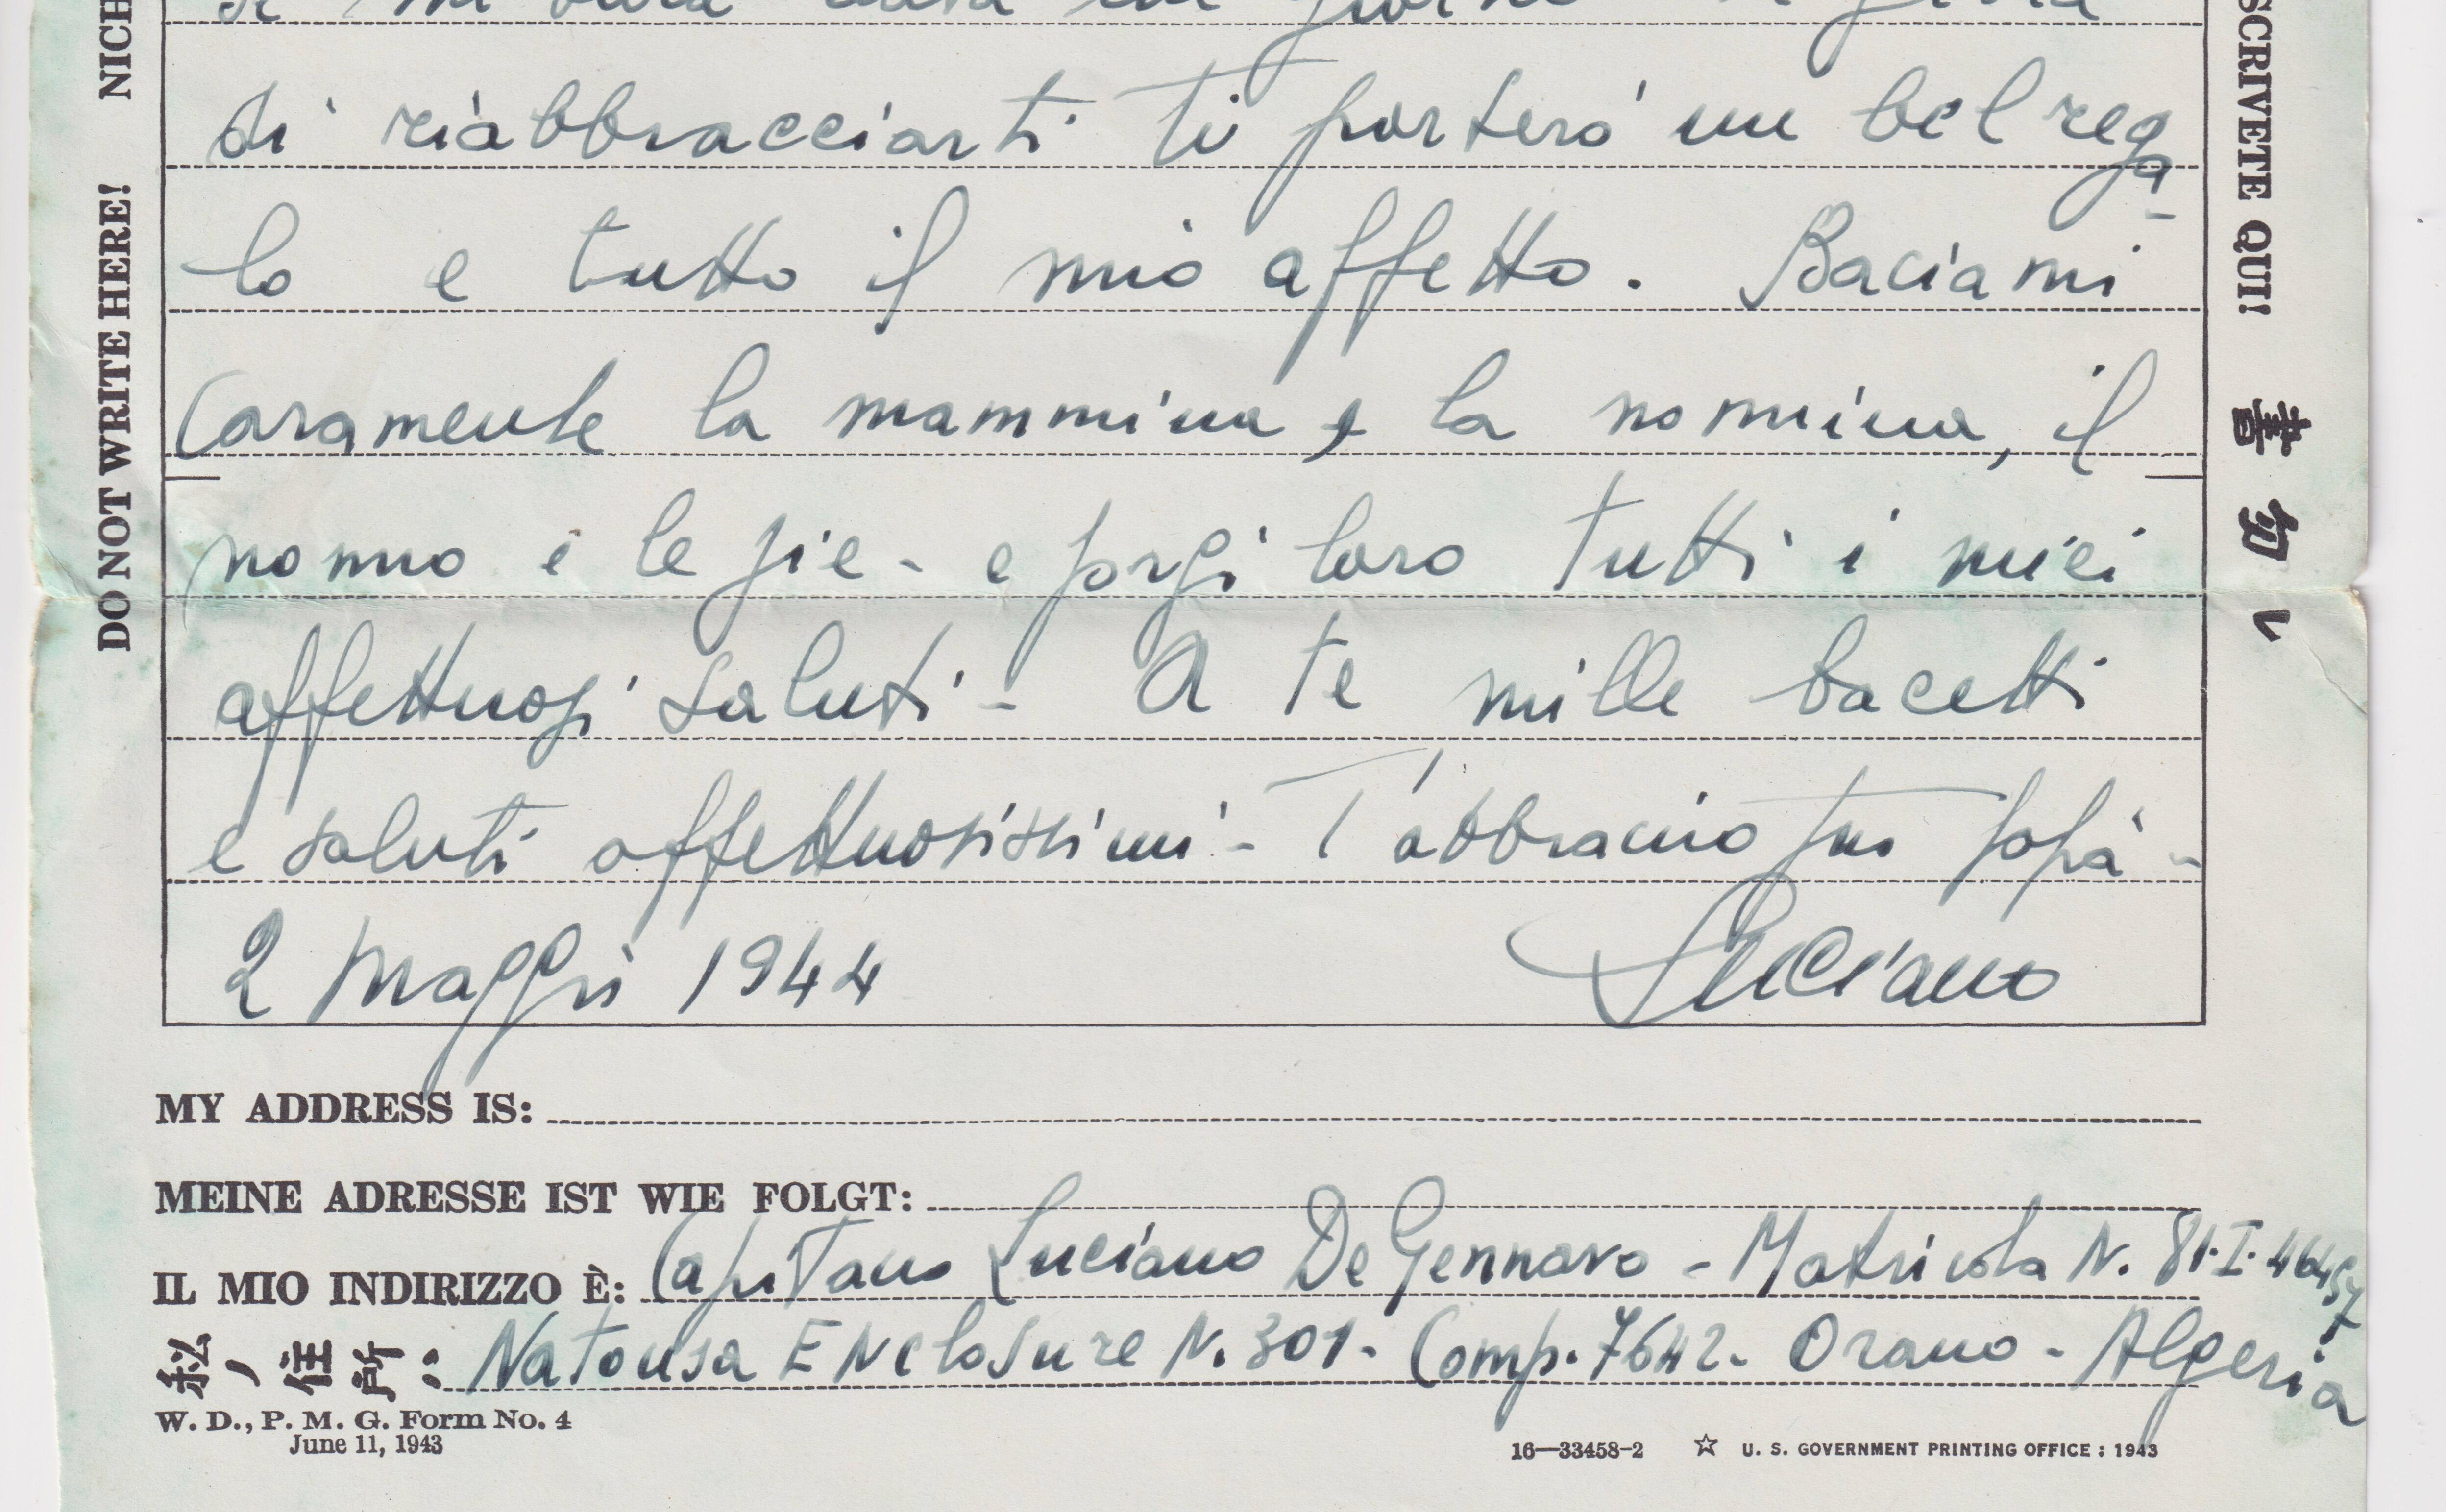 di riabbracciarti ti porterò un bel rega-
lo e tutto il mio affetto. Baciami
Caramente la mammina e la nonnina, il
nonno e le zie - e porgi loro tutti i miei
affettuosi saluti - A te mille bacetti
e saluti affettuosissimi - T'abbraccio tuo papà -
2 Maggio 1944
Luciano
MY ADDRESS IS:
MEINE ADRESSE IST WIE FOLGT:
IL MIO INDIRIZZO È: Capitano Luciano De Gennaro - Matricola N. 81·I·46457
私ノ住所: Natousa Enclosure N. 301 - Comp. 7642 - Orano - Algeria
W. D., P. M. G. Form No. 4
June 11, 1943
16—33458-2 ☆ U. S. GOVERNMENT PRINTING OFFICE : 1943
DO NOT WRITE HERE! NICH
SCRIVETE QUI! 書勿レ